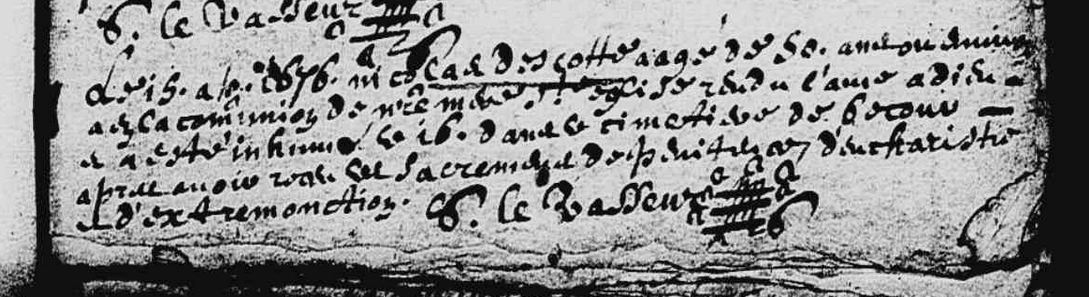 G. le Vasseur
Le 15. a[...] 1676. nicolas descotte aagé de 50. ans ou environ
a en la com̃union de n're mere s. église rendu l'ame a dieu
et a esté inhumé le 16. dans le cimetiere de becour
apres avoir receu les sacremens de penitence, d'eucharistie
et d'extremonction. G. le Vasseur